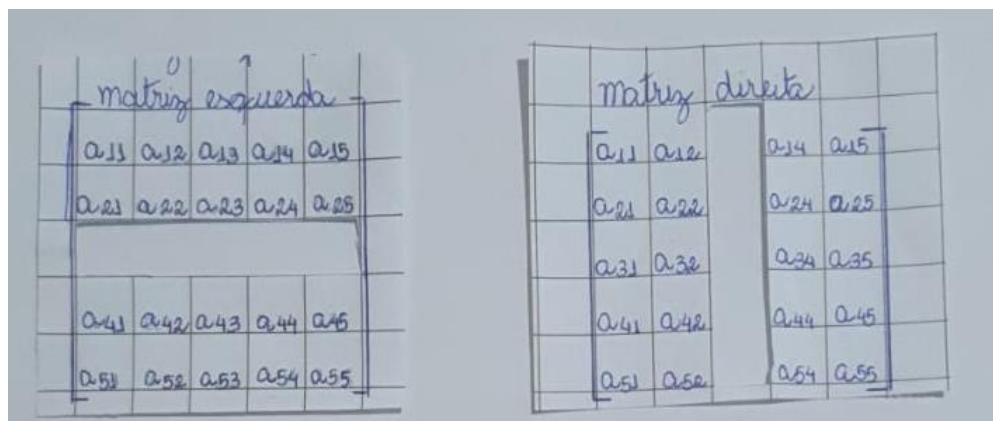 matriz esquerda
a11 a12 a13 a14 a15
a21 a22 a23 a24 a25
a41 a42 a43 a44 a45
a51 a52 a53 a54 a55
matriz direita
a11 a12 a14 a15
a21 a22 a24 a25
a31 a32 a34 a35
a41 a42 a44 a45
a51 a52 a54 a55